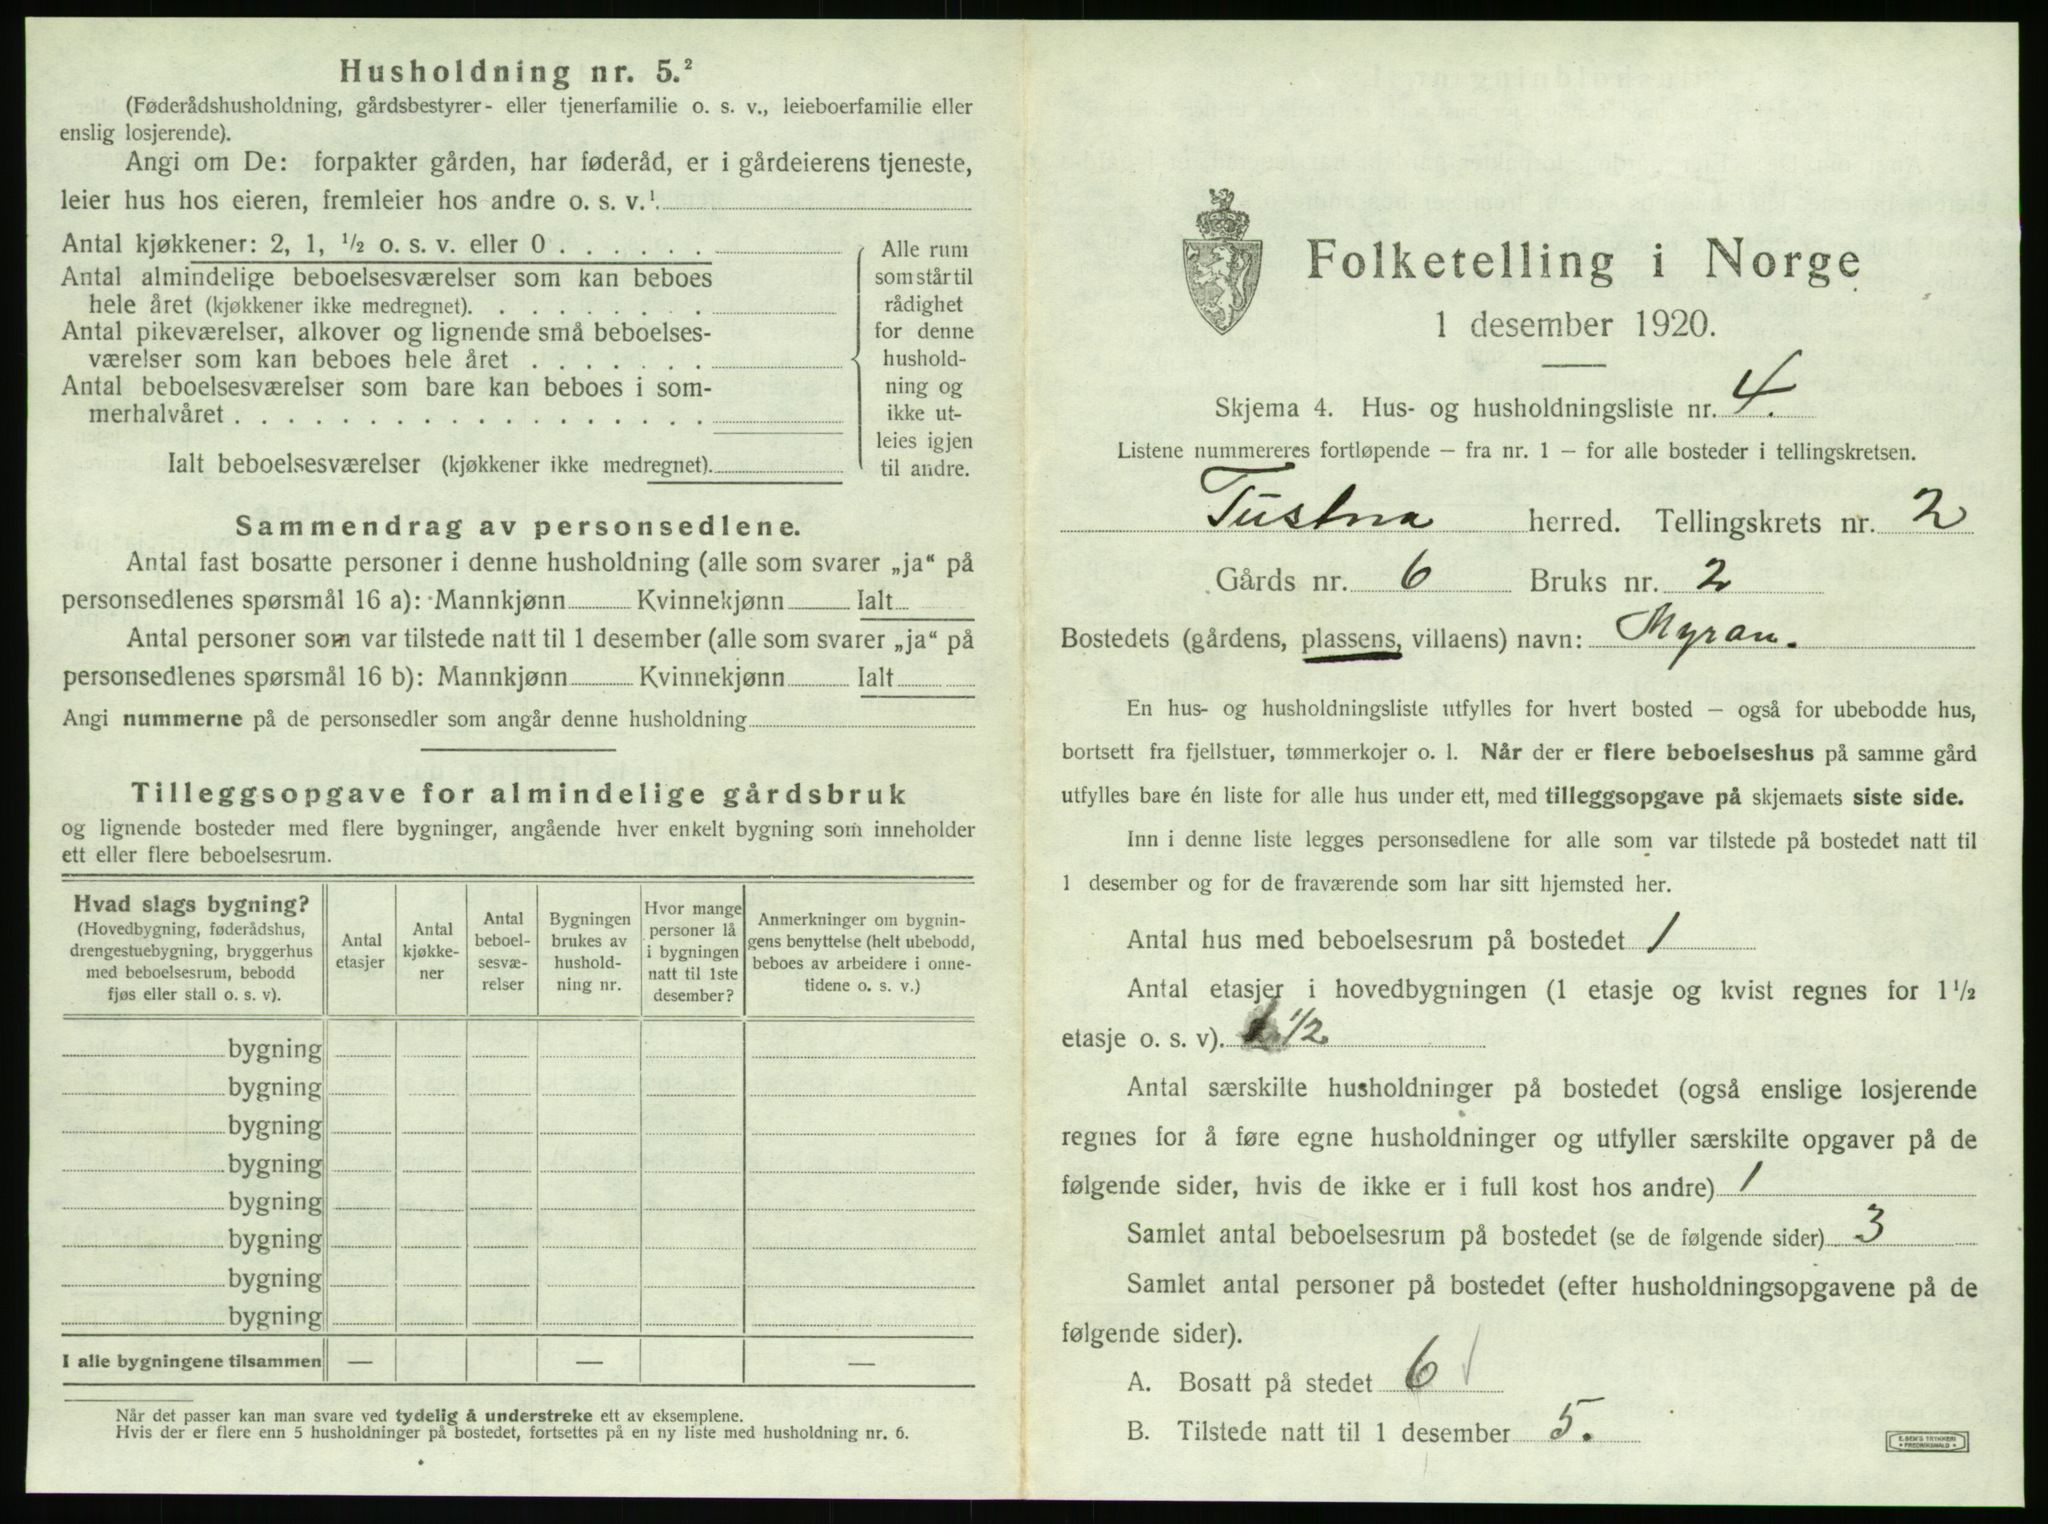 Husholdning nr. 5.²
(Føderådshusholdning, gårdsbestyrer- eller tjenerfamilie o. s. v., leieboerfamilie eller
enslig losjerende).
Angi om De: forpakter gården, har føderåd, er i gårdeierens tjeneste,
leier hus hos eieren, fremleier hos andre o. s. v.¹
Antal kjøkkener: 2, 1, ½ o. s. v. eller 0 . . . . . .
Antal almindelige beboelsesværelser som kan beboes
hele året (kjøkkener ikke medregnet). . . . . . . . .
Antal pikeværelser, alkover og lignende små beboelses-
værelser som kan beboes hele året . . . . . . .
Antal beboelsesværelser som bare kan beboes i som-
merhalvåret . . . . . . . . . . . . . . . . . .
Ialt beboelsesværelser (kjøkkener ikke medregnet).
Alle rum
som står til
rådighet
for denne
hushold-
ning og
ikke ut-
leies igjen
til andre.
Sammendrag av personsedlene.
Antal fast bosatte personer i denne husholdning (alle som svarer „ja“ på
personsedlenes spørsmål 16 a): Mannkjønn Kvinnekjønn Ialt
Antal personer som var tilstede natt til 1 desember (alle som svarer „ja“ på
personsedlenes spørsmål 16 b): Mannkjønn Kvinnekjønn Ialt
Angi nummerne på de personsedler som angår denne husholdning
Tilleggsopgave for almindelige gårdsbruk
og lignende bosteder med flere bygninger, angående hver enkelt bygning som inneholder
ett eller flere beboelsesrum.
Hvad slags bygning?
(Hovedbygning, føderådshus,
drengestuebygning, bryggerhus
med beboelsesrum, bebodd
fjøs eller stall o. s. v).
Antal
etasjer
Antal
kjøkke-
ner
Antal
beboel-
sesvæ-
relser
Bygningen
brukes av
hushold-
ning nr.
Hvor mange
personer lå
i bygningen
natt til 1ste
desember?
Anmerkninger om bygnin-
gens benyttelse (helt ubebodd,
beboes av arbeidere i onne-
tidene o. s. v.)
bygning
bygning
bygning
bygning
bygning
bygning
bygning
bygning
I alle bygningene tilsammen — — —
Når det passer kan man svare ved tydelig å understreke ett av eksemplene.
Hvis der er flere enn 5 husholdninger på bostedet, fortsettes på en ny liste med husholdning nr. 6.
Folketelling i Norge
1 desember 1920.
Skjema 4. Hus- og husholdningsliste nr. 4.
Listene nummereres fortløpende – fra nr. 1 – for alle bosteder i tellingskretsen.
Tustna herred. Tellingskrets nr. 2
Gårds nr. 6 Bruks nr. 2
Bostedets (gårdens, plassens, villaens) navn: Myran.
En hus- og husholdningsliste utfylles for hvert bosted – også for ubebodde hus,
bortsett fra fjellstuer, tømmerkojer o. l. Når der er flere beboelseshus på samme gård
utfylles bare én liste for alle hus under ett, med tilleggsopgave på skjemaets siste side.
Inn i denne liste legges personsedlene for alle som var tilstede på bostedet natt til
1 desember og for de fraværende som har sitt hjemsted her.
Antal hus med beboelsesrum på bostedet 1
Antal etasjer i hovedbygningen (1 etasje og kvist regnes for 1½
etasje o. s. v). 1½
Antal særskilte husholdninger på bostedet (også enslige losjerende
regnes for å føre egne husholdninger og utfyller særskilte opgaver på de
følgende sider, hvis de ikke er i full kost hos andre) 1
Samlet antal beboelsesrum på bostedet (se de følgende sider) 3
Samlet antal personer på bostedet (efter husholdningsopgavene på de
følgende sider).
A. Bosatt på stedet 6
B. Tilstede natt til 1 desember 5.
E. SEM'S TRYKKERI
FREDRIKSHALD